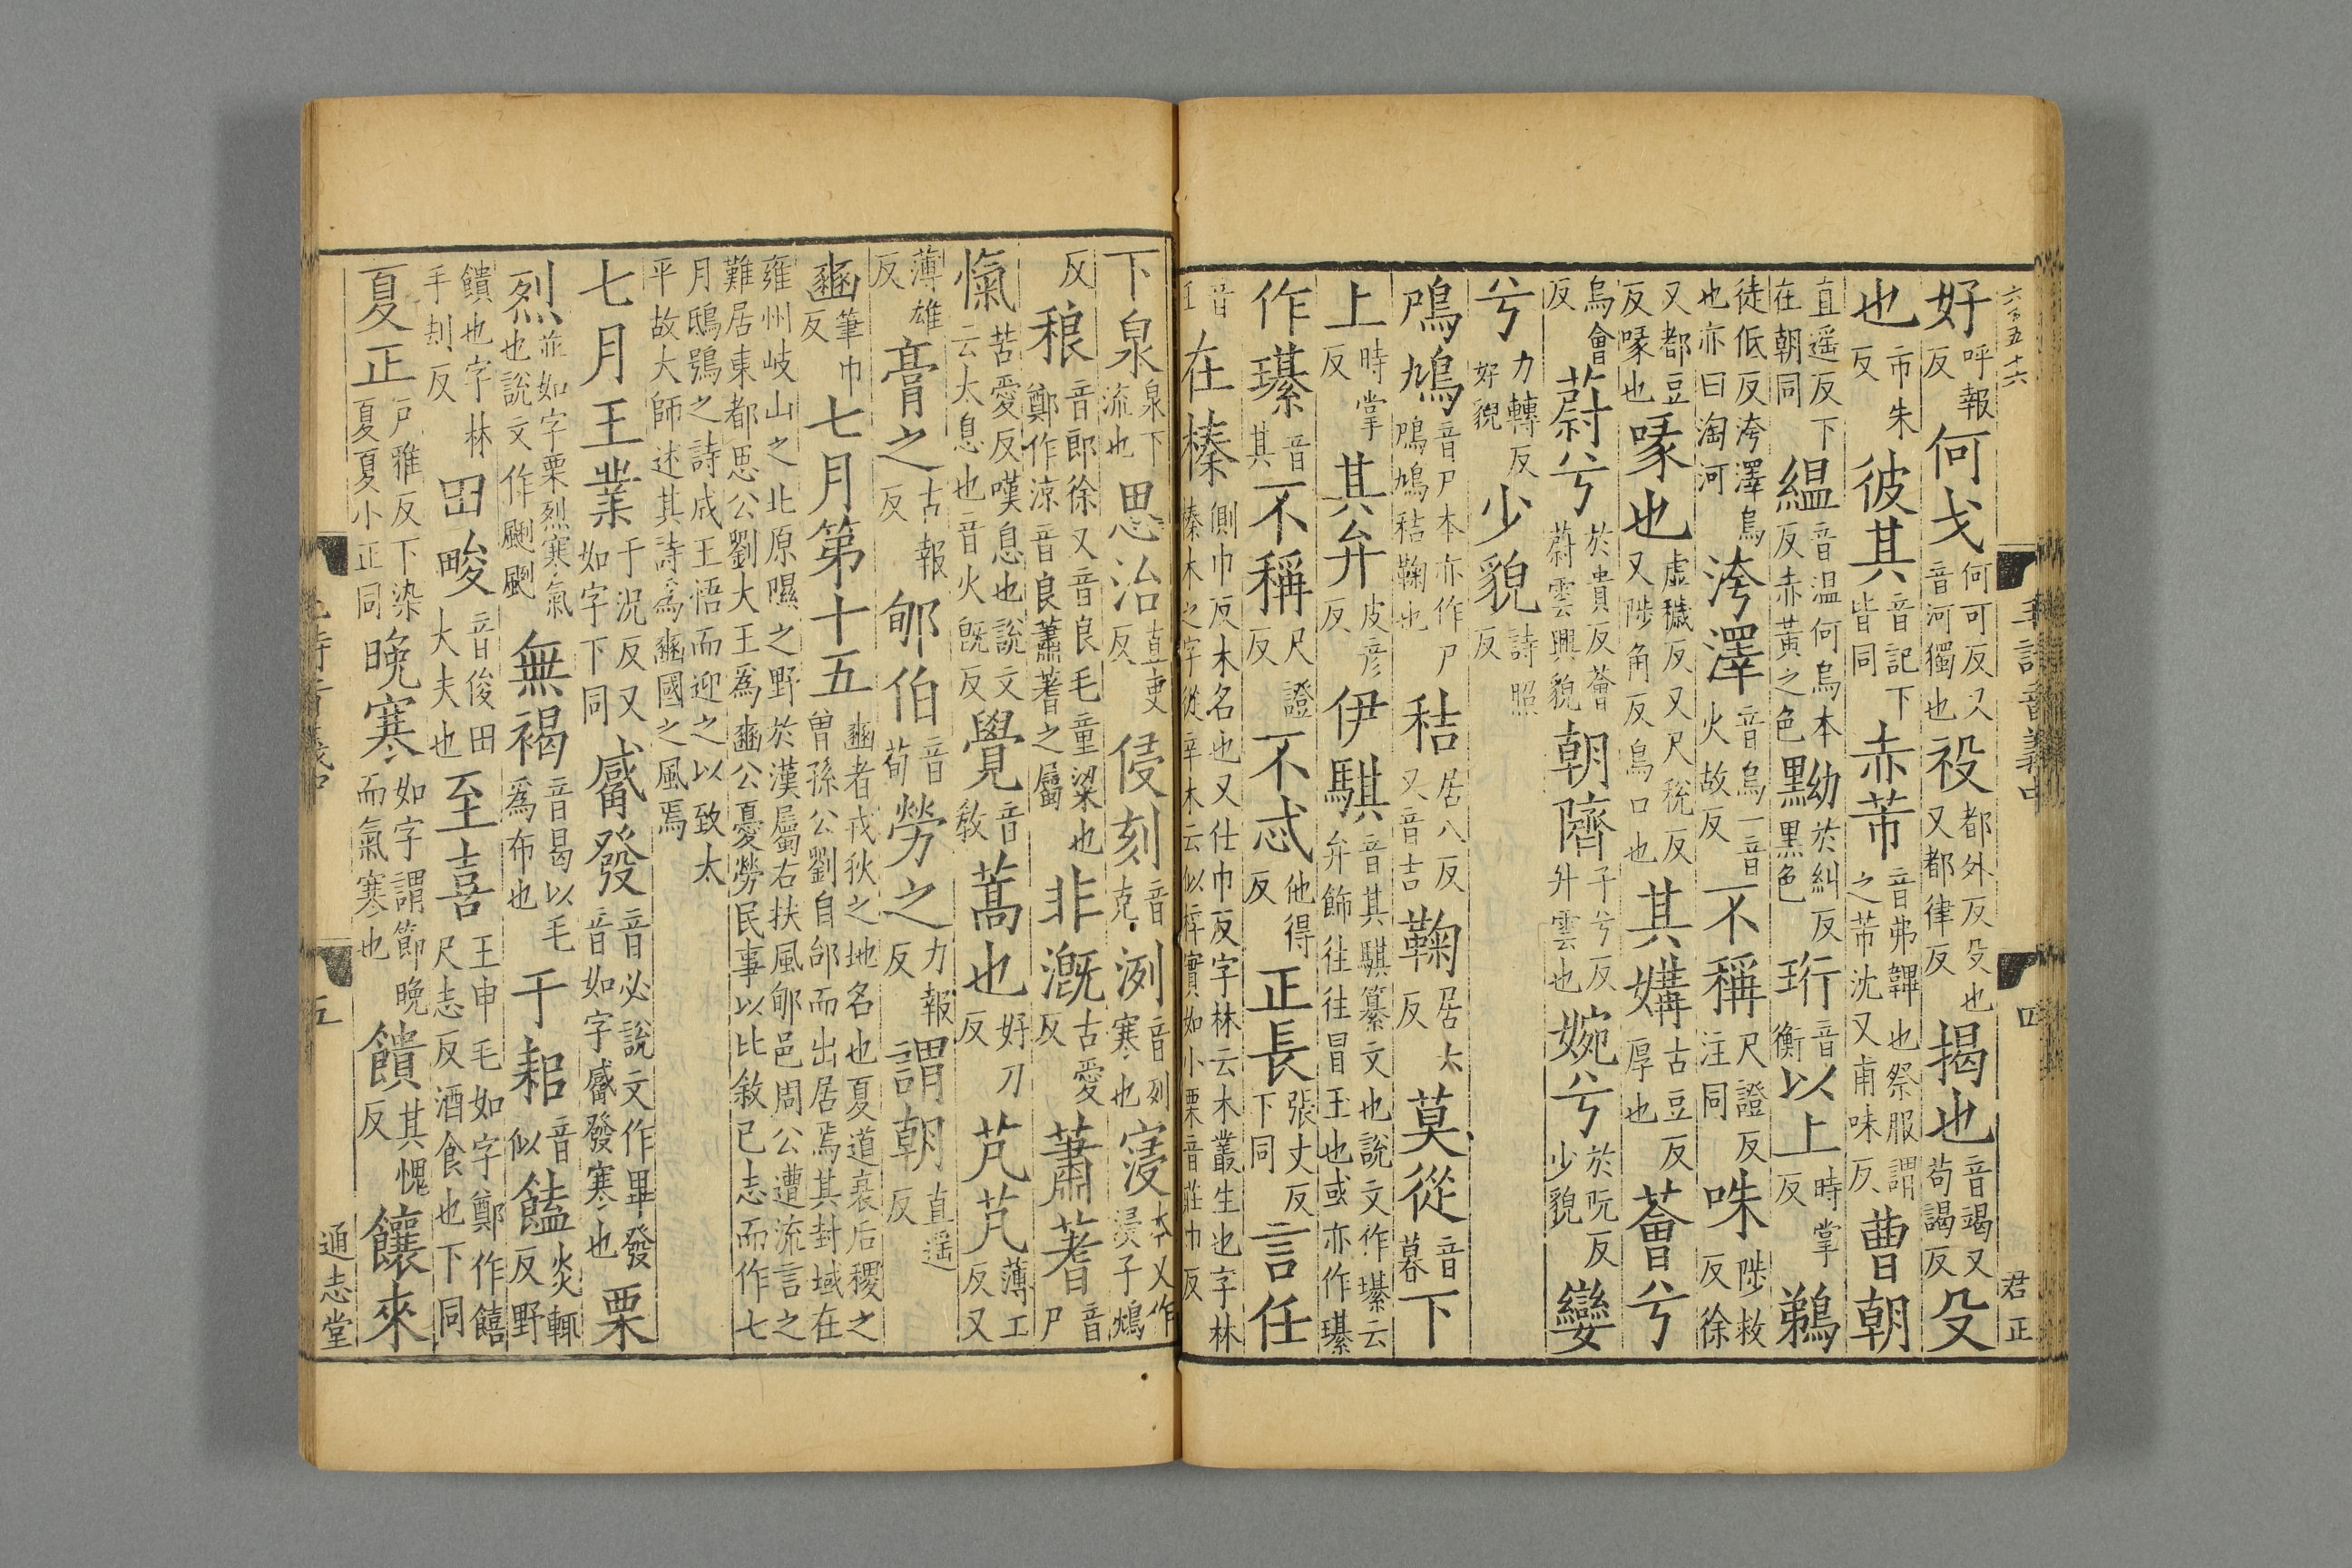 六百五十六 毛詩音義中 四 君正
好呼報反何戈何可反又音河獨也祋都外反殳也又都律反揭也音竭又苟謁反殳
也市朱反彼其音記下皆同赤芾音弗韠也祭服謂之芾沈又甫味反曹朝
直遥反下在朝同緼音温何烏本反赤黃之色黝於糾反黑色珩音衡以上時掌反鵜
徒低反洿澤烏也亦曰淘河洿澤音烏一音火故反不稱尺證反注同咮陟救反徐
又都豆反喙也喙也虚穢反又尺稅反又陟角反鳥口也其媾古豆反厚也薈兮
烏會反蔚兮於貴反薈蔚雲興貌朝隮子兮反升雲也婉兮於阮反少貌孌
兮力轉反好貌少貌詩照反
鳲鳩音尸本亦作尸鳲鳩秸鞠也秸居八反又音吉鞠居六反莫從音暮下
上時掌反其弁皮彦反伊騏音其騏綦文也說文作瑧云弁飾往往冒玉也或亦作璂
作璂音其不稱尺證反不忒他得反正長張丈反下同言任
音壬在榛側巾反木名也又仕巾反字林云木叢生也字林榛木之字從辛木云似梓實如小栗音莊巾反
下泉泉下流也思治直吏反侵刻音克洌音列寒也寖本又作浸子鴆
反稂音郎徐又音良毛童粱也鄭作涼音良蕭蓍之屬非溉古愛反蕭蓍音尸
愾苦愛反嘆息也說文云太息也音火旣反覺音敎蒿也好刀反芃芃薄工反又
薄雄反膏之古報反郇伯音荀勞之力報反謂朝直遥反
豳筆巾反七月第十五豳者戎狄之地名也夏道衰后稷之曾孫公劉自邰而出居焉其封域在
雍州岐山之北原隰之野於漢屬右扶風郇邑周公遭流言之難居東都思公劉大王爲豳公憂勞民事以比敘已志而作七
月鴟鴞之詩成王悟而迎之以致太平故大師述其詩爲豳國之風焉
七月王業于況反又如字下同觱發音必說文作畢發音如字觱發寒也栗
烈並如字栗烈寒氣也說文作颲颲無褐音曷以毛爲布也于耜音似饁炎輒反野
饋也字林手刦反田畯音俊田大夫也至喜王申毛如字鄭作饎尺志反酒食也下同
夏正戸雅反下染夏夏小正同晚寒如字謂節晚而氣寒也饋其愧反饟來
毛詩音義中 五 通志堂